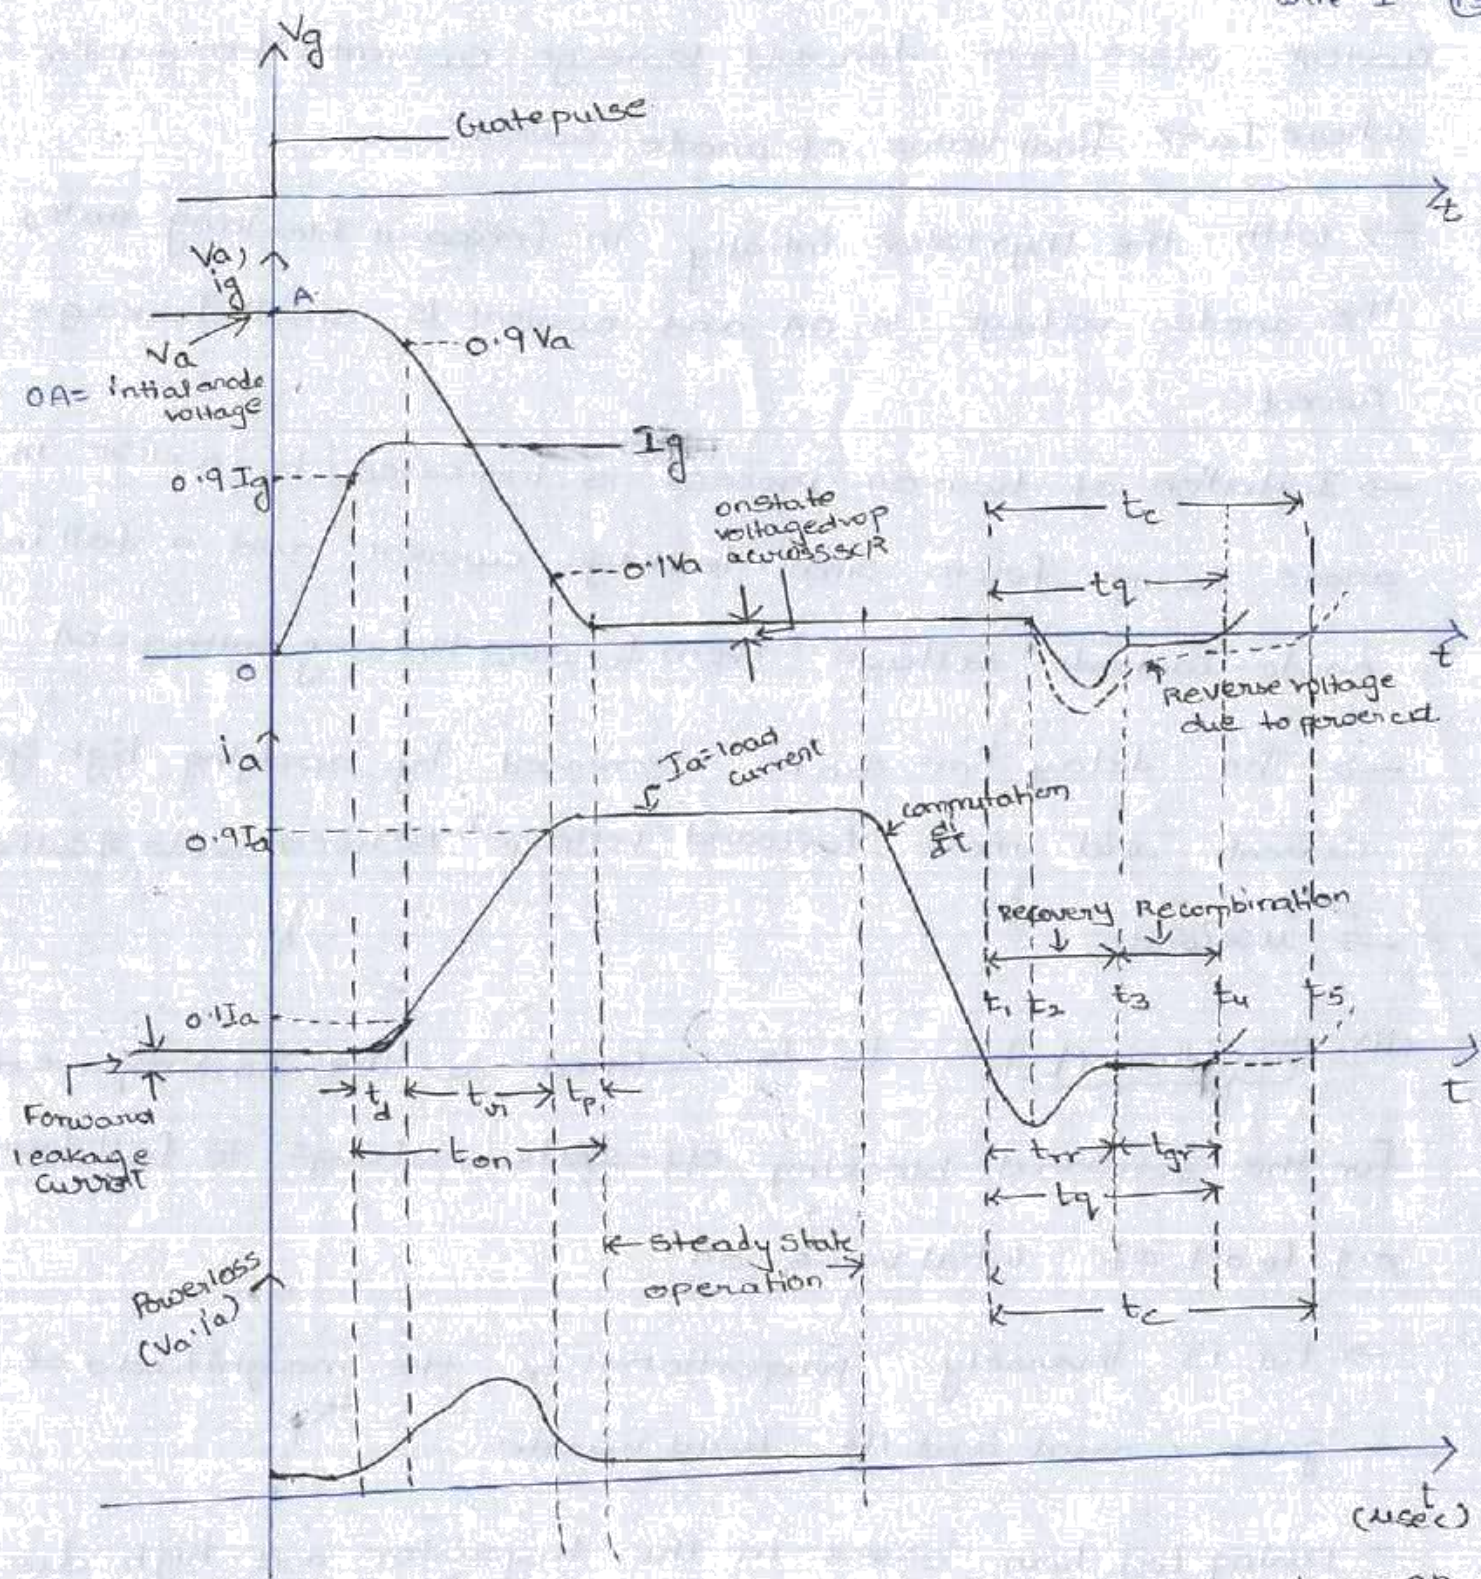 Vg
Gatepulse
t
Va,
ig
A
Va
OA= intial anode
voltage
0.9 Va
Ig
0.9 Ig
onstate
voltagedrop
across SCR
0.1Va
tc
tq
o
t
Reverse voltage
due to power ckt
ia
Ia=load
current
0.9Ia
commutation
di
dt
Recovery Recombination
t1 t2 t3 t4 t5
0.1Ia
Forward
leakage
Current
td tr tp
ton
t
trr tgr
tq
steady state
operation
tc
Powerloss
(Va.ia)
t
(μsec)